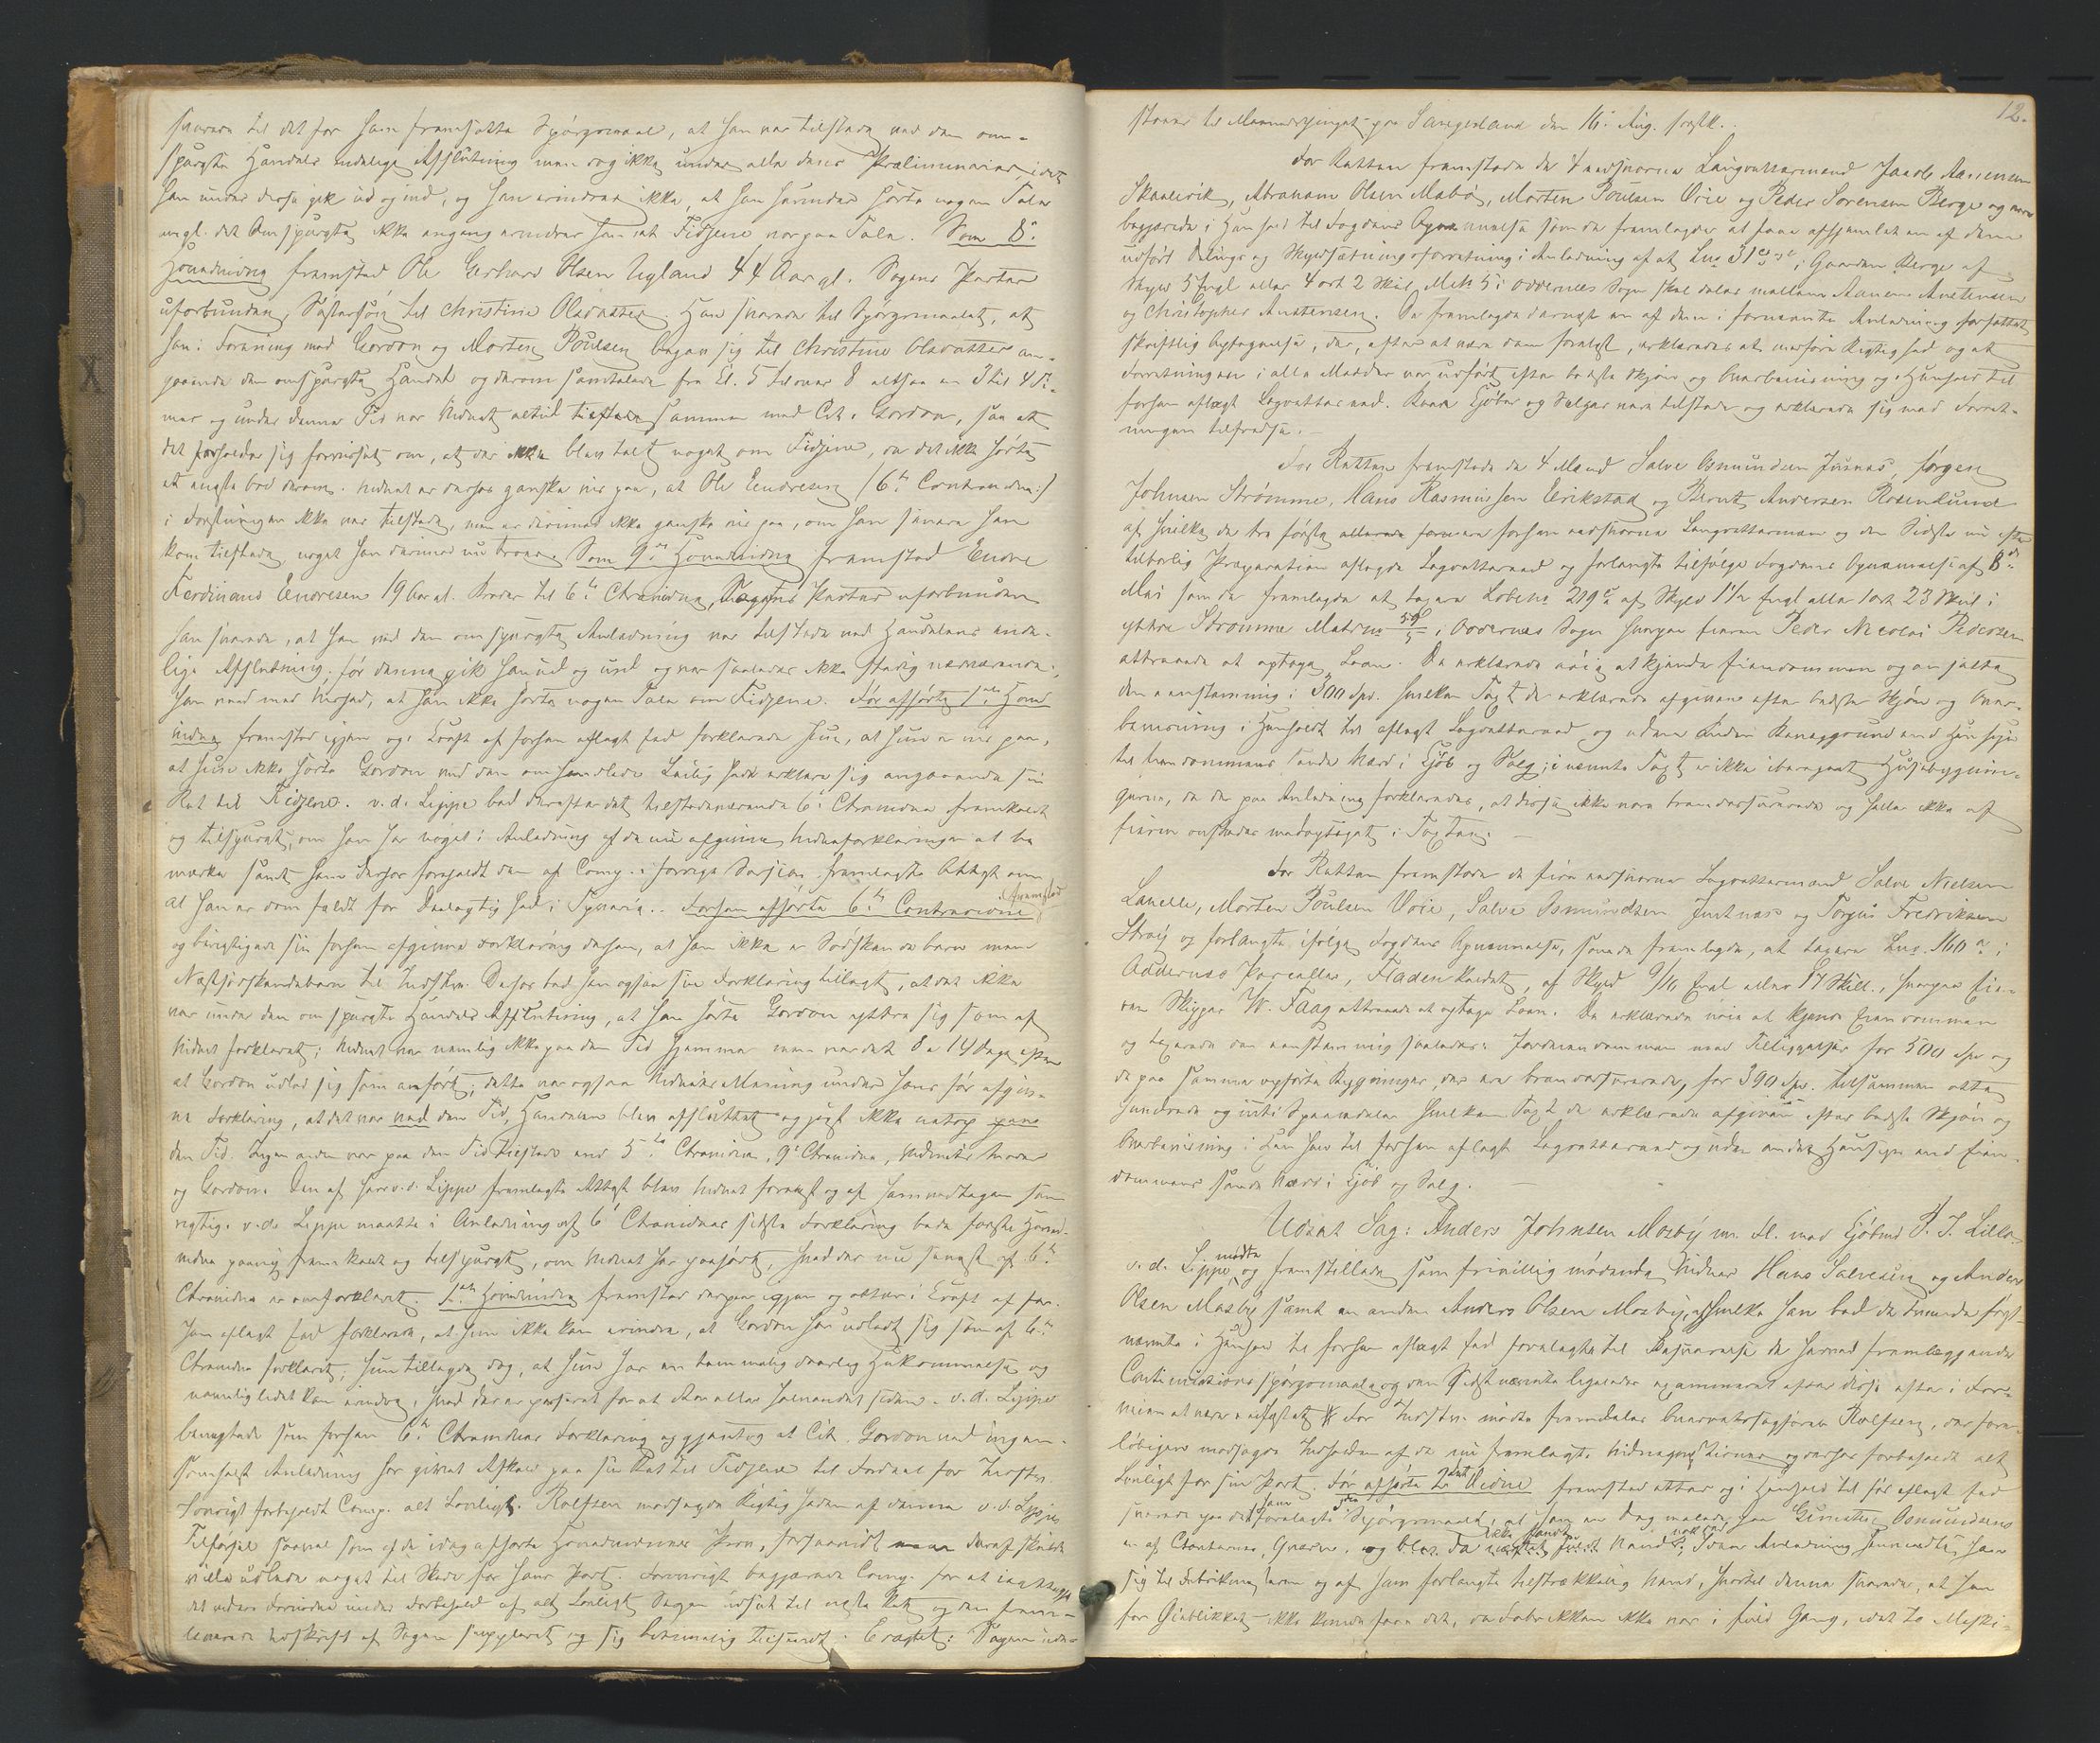 svarede til det for ham fremsatte Spörgsmaal, at han var tilstede ved den om-
spurgte Handels endelige Afslutning men dog ikke under alle dens Præliminarier, idet
han under disse gik ud og ind, og han erindrer ikke, at han herunder hørte nogen Tale
angl. det Omspurgte, ikke engang erindrer han, at Fidjene var paa Tale. Som 8de
Hovedvidne fremstod Ole Gerhard Olsen Ugland 44 Aar gl. Sagens Parter
uforbunden, Søstersön til Christine Olsdatter. Han svarede til Spörgsmaalet, at
han i Forening med Gordon og Morten Poulsen begav sig til Christine Olsdatter an-
gaaende den omspurgte Handel og derom samtalede fra Kl. 5 til over 8 altsaa en 3 til 4 Ti-
mer og under denne Tid var Vidnet altid sammen med Cit. Gordon, saa at
det forholder sig forvisset om, at der ikke blev talt noget om Fidjene, da det ikke hørte
et eneste Ord derom. Vidnet er derhos ganske vis paa, at Ole Endresen /: 6te Contravidne :/
i Førstningen ikke var tilstede, men er derimod ikke ganske vis paa, om han senere
kom tilstede, noget han derimod nu troer. Som 9de Hovedvidne fremstod Endre
Ferdinand Endresen 19 Aar gl. Broder til 6te Ctravidne, Sagens Parter uforbunden
han svarede, at han ved den omspurgte Anledning var tilstede ved Handelens ende-
lige Afslutning; før denne gik han ud og ind og var saaledes ikke stadig nærværende;
han veed med Vished, at han ikke hørte nogen Tale om Fidjene. Før afhørte 1ste Hoved
vidne fremstod igjen og i Kraft af forhen aflagt Ed forklarede hun, at hun er vis paa,
at hun ikke hørte Gordon ved den omhandlede Leilighed erklære sig angaaende sin
Ret til Fidjene. v. d. Lippe bad derefter det tilstedeværende 6te Ctravidne fremkaldt
og tilspurgt, om han har noget i Anledning af de nu afgivne Vidneforklaringer at be
mærke samt ham derhos foreholdt den af Comp. i forrige Session fremlagte Attest om
at han er dømfældt for Deelagtighed i Tyverie. Forhen afhørte 6te Contravidne fremstod
og berigtigede sin forhen afgivne Forklaring derhen, at han ikke er Sødskendebarn men
Næstsødskendebarn til Indstvn. Derhos bad han ogsaa sin Forklaring tillagt, at det ikke
var under den omspurgte Handels Afslutning, at han hørte Gordon yttre sig som af
Vidnet forklaret; Vidnet var nemlig ikke paa den Tid hjemme men var det 8 a 14 Dage efter
at Gordon udlod sig som anført; dette var ogsaa Vidnets Mening under hans før afgiv-
ne Forklaring, at det var ved den Tid, Handelen blev afsluttet og just ikke netop paa
den Tid. Ingen anden var paa den Tid tilstede end 5te Ctravidne, 9de Ctravidne, Vidnets Moder
og Gordon. Den af Hr. v. d. Lippe fremlagte Attest blev Vidnet forelæst og af ham vedtagen som
rigtig. v. d. Lippe maatte i Anledning af 6te Ctravidnes sidste Forklaring bede første Hoved-
vidne paany fremkaldt og tilspurgt, om Vidnet har paahørt, hvad der nu senest af 6te
Ctravidne er omforklaret. 1ste Hovedvidne fremstod derpaa igjen og atter i Kraft af for-
hen aflagt Ed forklarede, at hun ikke kan erindre, at Gordon har udladt sig som af 6te
Ctravidne forklaret; hun tillagde dog, at hun har en temmelig daarlig Hukommelse og
nemlig lidet kan erindre, hvad der er passeret for et Aar eller halvandet siden. v. d. Lippe
benegtede som forhen 6te Ctravidnes Forklaring og gjentog at Cit. Gordon ved ingen-
somhelst Anledning har givet Afkald paa sin Ret til Fidjene til Fordeel for Indstvn.
Forøvrigt forbeholdt Comp. alt Lovligt. Rolfsen modsagde Rigtigheden af denne v. d. Lippes
Tilførsel saavel som af de idag afhørte Hovedvidners Prov, forsaavidt deraf skulde
ville udledes noget til Skade for hans Part. Forøvrigt begjærede Comp. for at iagttage
det videre Fornødne under Forbehold af alt Lovligt Sagen udsat til næste Ret og den frem-
leverede Udskrift af Sagen suppleret og sig betimelig tilsendt. Eragtet: Sagen udsæt-

12.
stoner til Maanedsthinget paa Sangesland den 16de Aug. førstk.
For Retten fremstode de 4 edsvorne Laugrettesmænd Jacob Aanensen
Skaalevik, Abraham Olsen Mebø, Morten Poulsen Voie og Peder Sørensen Berge og
begjærede i Henhold til Fogdens Opnævnelse som de fremlagde at faae afhjemlet en af dem
udført Delings og Skyldsætningsforretning i Anledning af at Lno 31 i Gaarden Berge af
Skyld 5 Engl. eller 4 ort 2 Skil. Matr. 5 i Oddernes Sogn skal deles mellem Aanen Anstensen
og Christopher Anstensen. De fremlagde derhos en af dem i fornævnte Anledning forfattet
skriftlig Optegnelse, der, efter at være dem forelæst, erklæredes at medføre Rigtighed og at
Forretningen i alle Maader var udført efter bedste Skjøn og Overbeviisning og i Henhold til
forhen aflagt Laugrettesed. Baade Kjøber og Sælger var tilstede og erklærede sig med Forret-
ningen tilfredse.
For Retten fremstode de 4 Mænd Salve Osmundsen Justnæs, Jørgen
Johnsen Strømme, Hans Rasmussen Eirikstad og Bernt Andersen Rosenlund
af hvilke de tre første forhen edsvorne Laugrettesmænd og den Sidste nu efter
tilbørlig Præparation aflagde Laugrettesed og forlangte ifølge Fogdens Opnævnelse af 8de
Mai som de fremlagde at taxere Løbeno 219 a af Skyld 1½ Engl. eller 1 ort 23 Skil. i
yttre Strømme Matrno 59/5 i Oddernes Sogn hvorpaa Eieren Peder Nicolai Pedersen
attraaede at optage Laan. De erklærede nøie at kjende Eiendommen og ansatte
den eenstemmig i 300 Spd. hvilken Taxt de erklærede afgiven efter bedste Skjøn og Over-
beviisning i Henhold til aflagt Laugrettesed og uden anden Bevæggrund end Hensyn
til Eiendommens sande Værd i Kjøb og Salg; i nævnte Taxt er ikke iberegnet Husebygnin-
gerne, da der paa Anledning forklaredes, at disse ikke vare brandassurerede og heller ikke af
Eieren ønskedes medoptaget i Taxten.
For Retten fremstode de fire edsvorne Laugrettesmænd Salve Nielsen
Lauelle, Morten Poulsen Voie, Salve Osmundsen Justnæs og Torgius Fredriksen
Straij og forlangte ifølge Fogdens Opnævnelse, som de fremlagde, at taxere Lno 160 a i
Oddernes Parceller, Fladen kaldet, af Skyld 9/16 Engl. eller 17 Skill., hvorpaa Eie-
ren Skipper W. Faag attraaede at optage Laan. De erklærede nøie at kjende Eiendommen
og taxerede den eenstemmig saaledes: Jordeiendommen med Tilliggelser for 500 Spd. og
de paa samme opførte Bygninger, der ere brandassurerede, for 390 Spd. tilsammen otte
hundrede og niti Speciedaler hvilken Taxt de erklærede afgiven efter bedste Skjøn og
Overbeviisning i Henhold til forhen aflagt Laugrettesed og uden andet Hensyn end Eien-
dommens sande Værd i Kjøb og Salg.
Udsat Sag: Anders Johnsen Mosby m. fl. mod Kjøbmd P. J. Lilloe.
v. d. Lippe mødte og fremstillede som frivillig mødende Vidner Hans Salvesen og Anders
Olsen Mosby samt en anden Anders Olsen Mosby, hvilke han bad de tvende først-
nævnte i Henhold til forhen aflagt Ed forelagte til Besvarelse de herved fremlæggende
Continuationsspørgsmaale og den sidstnævnte ligeledes examineret efter disse efter i For-
veien at være edfæstet. For Indstvn. mødte fremdeles Overretssagfører Rolfsen, der fore-
løbigen modsagde Indholdet af de nu fremlagte og derhos forbeholdt alt
Lovligt for sin Part. Før afhørte 2det Vidne fremstod atter og i Henhold til før aflagt Ed
svarede paa det ham forelagte Spørgsmaal, at han en Dag malede paa Gunsteen Osmundsens
en af Ctanternes, Qværn, og blev da ikke havde nok Vand; i den Anledning henvendte han
sig til Fabrikmesteren og af ham forlangte tilstrækkelig Vand, hvortil denne svarede, at han
for Øieblikket ikke kunde faae det, da Fabrikken ikke var i fuld Gang, idet to Maski-